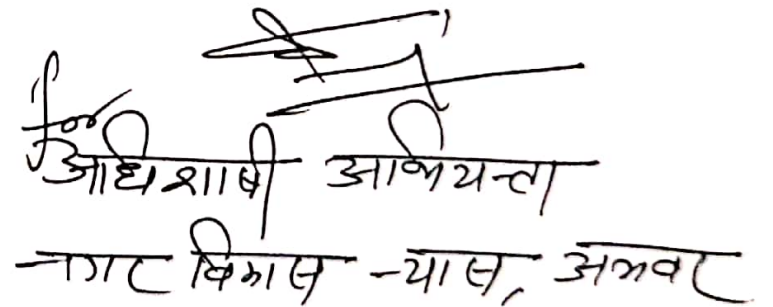 for
अधिशाषी अभियन्ता
नगर विकास न्यास, अलवर